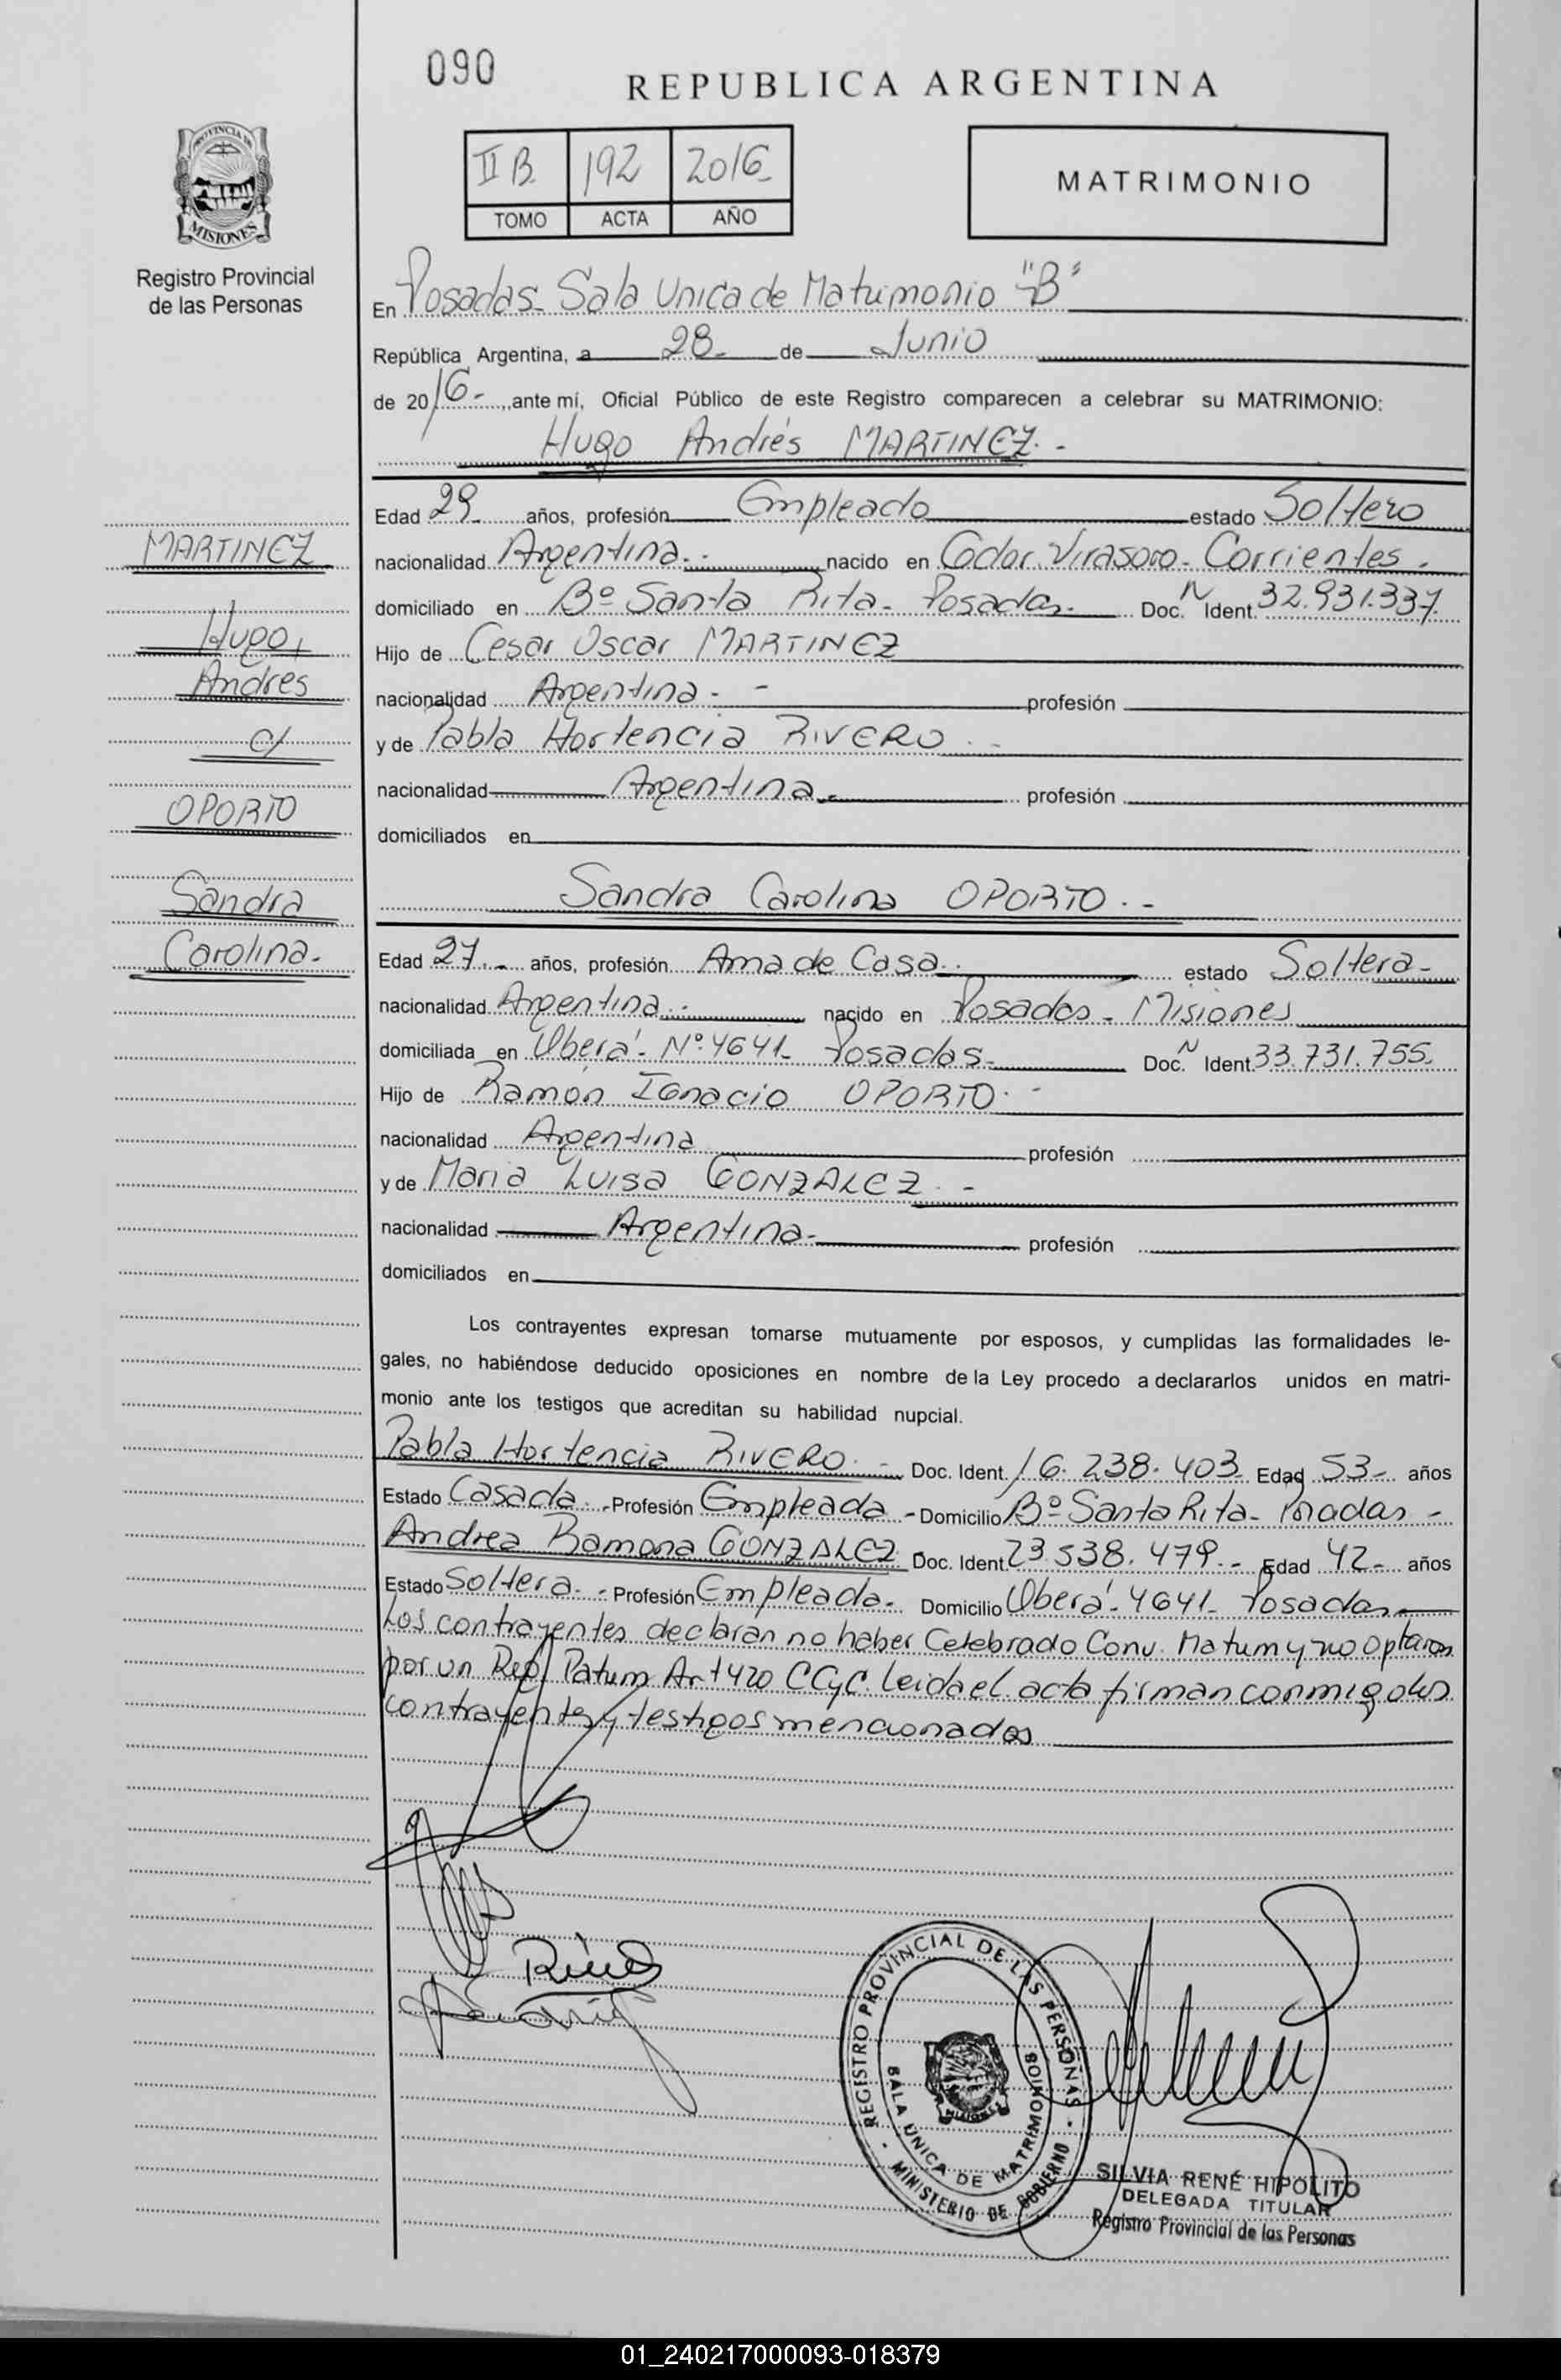 090
REPUBLICA ARGENTINA
II B. 192 2016
TOMO ACTA AÑO
MATRIMONIO
PROVINCIA DE
MISIONES
Registro Provincial
de las Personas
En Posadas - Sala Unica de Matrimonio "B"
República Argentina, a 28 de Junio
de 2016 - ante mí, Oficial Público de este Registro comparecen a celebrar su MATRIMONIO:
Hugo Andrés MARTINEZ. -
Edad 29 años, profesión Empleado estado Soltero
nacionalidad Argentina. - nacido en Gdor. Virasoro - Corrientes.
domiciliado en Bº Santa Rita - Posadas. Doc. N Ident. 32.931.337
Hijo de Cesar Oscar MARTINEZ
nacionalidad Argentina. - profesión
y de Pabla Hortencia RIVERO. -
nacionalidad Argentina - profesión
domiciliados en
Sandra Carolina OPORTO. -
Edad 27. - años, profesión Ama de Casa. estado Soltera -
nacionalidad Argentina. - nacido en Posadas - Misiones
domiciliada en Oberá - Nº 4641 - Posadas - Doc. N Ident. 33.731.755.
Hijo de Ramon Ignacio OPORTO. -
nacionalidad Argentina profesión
y de Maria Luisa GONZALEZ. -
nacionalidad Argentina - profesión
domiciliados en
MARTINEZ
Hugo,
Andres
c/
OPORTO
Sandra
Carolina.
Los contrayentes expresan tomarse mutuamente por esposos, y cumplidas las formalidades le-
gales, no habiéndose deducido oposiciones en nombre de la Ley procedo a declararlos unidos en matri-
monio ante los testigos que acreditan su habilidad nupcial.
Pabla Hortencia RIVERO. - Doc. Ident. 16.238.403 Edad 53 - años
Estado Casada. - Profesión Empleada - Domicilio Bº Santa Rita - Posadas -
Andrea Ramona GONZALEZ Doc. Ident. 23.538.479. - Edad 42 - años
Estado Soltera. - Profesión Empleada. Domicilio Oberá - 4641 - Posadas
Los contrayentes declaran no haber Celebrado Conv. Matrim y no optaron
por un Reg/ Patrim Art 420 CCyC. Leida el acta firman conmigo los
contrayentes y testigos mencionados
REGISTRO PROVINCIAL DE LAS PERSONAS
SALA UNICA DE MATRIMONIOS
MINISTERIO DE GOBIERNO
MISIONES
SILVIA RENÉ HIPOLITO
DELEGADA TITULAR
Registro Provincial de las Personas
01_240217000093-018379